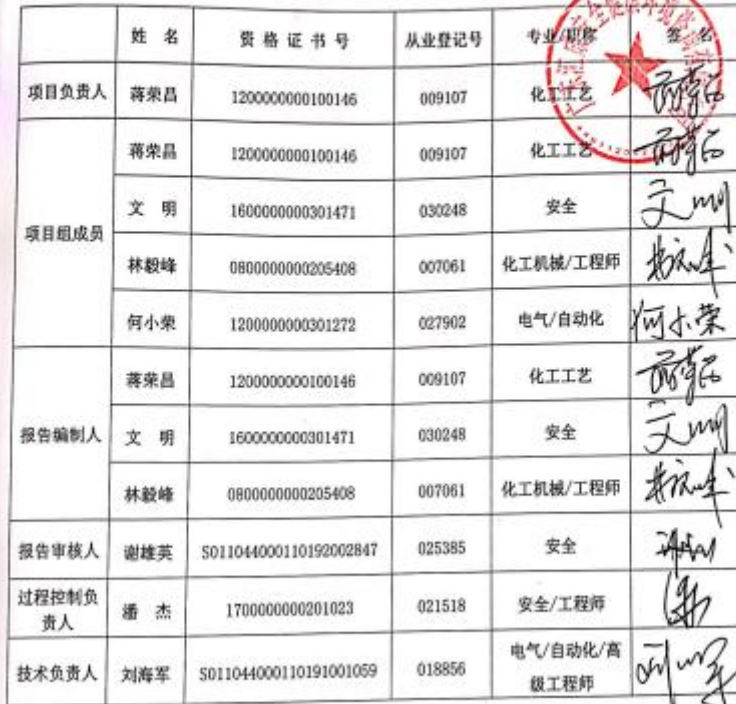 姓 名 资 格 证 书 号 从业登记号 专业/职称 签 名
项目负责人 蒋荣昌 1200000000100146 009107 化工工艺 蒋荣昌
项目组成员 蒋荣昌 1200000000100146 009107 化工工艺 蒋荣昌
文 明 1600000000301471 030248 安全 文明
林毅峰 0800000000205408 007061 化工机械/工程师 林毅峰
何小荣 1200000000301272 027902 电气/自动化 何小荣
报告编制人 蒋荣昌 1200000000100146 009107 化工工艺 蒋荣昌
文 明 1600000000301471 030248 安全 文明
林毅峰 0800000000205408 007061 化工机械/工程师 林毅峰
报告审核人 谢雄英 S011044000110192002847 025385 安全
过程控制负
责人 潘 杰 1700000000201023 021518 安全/工程师
技术负责人 刘海军 S011044000110191001059 018856 电气/自动化/高
级工程师 刘海军